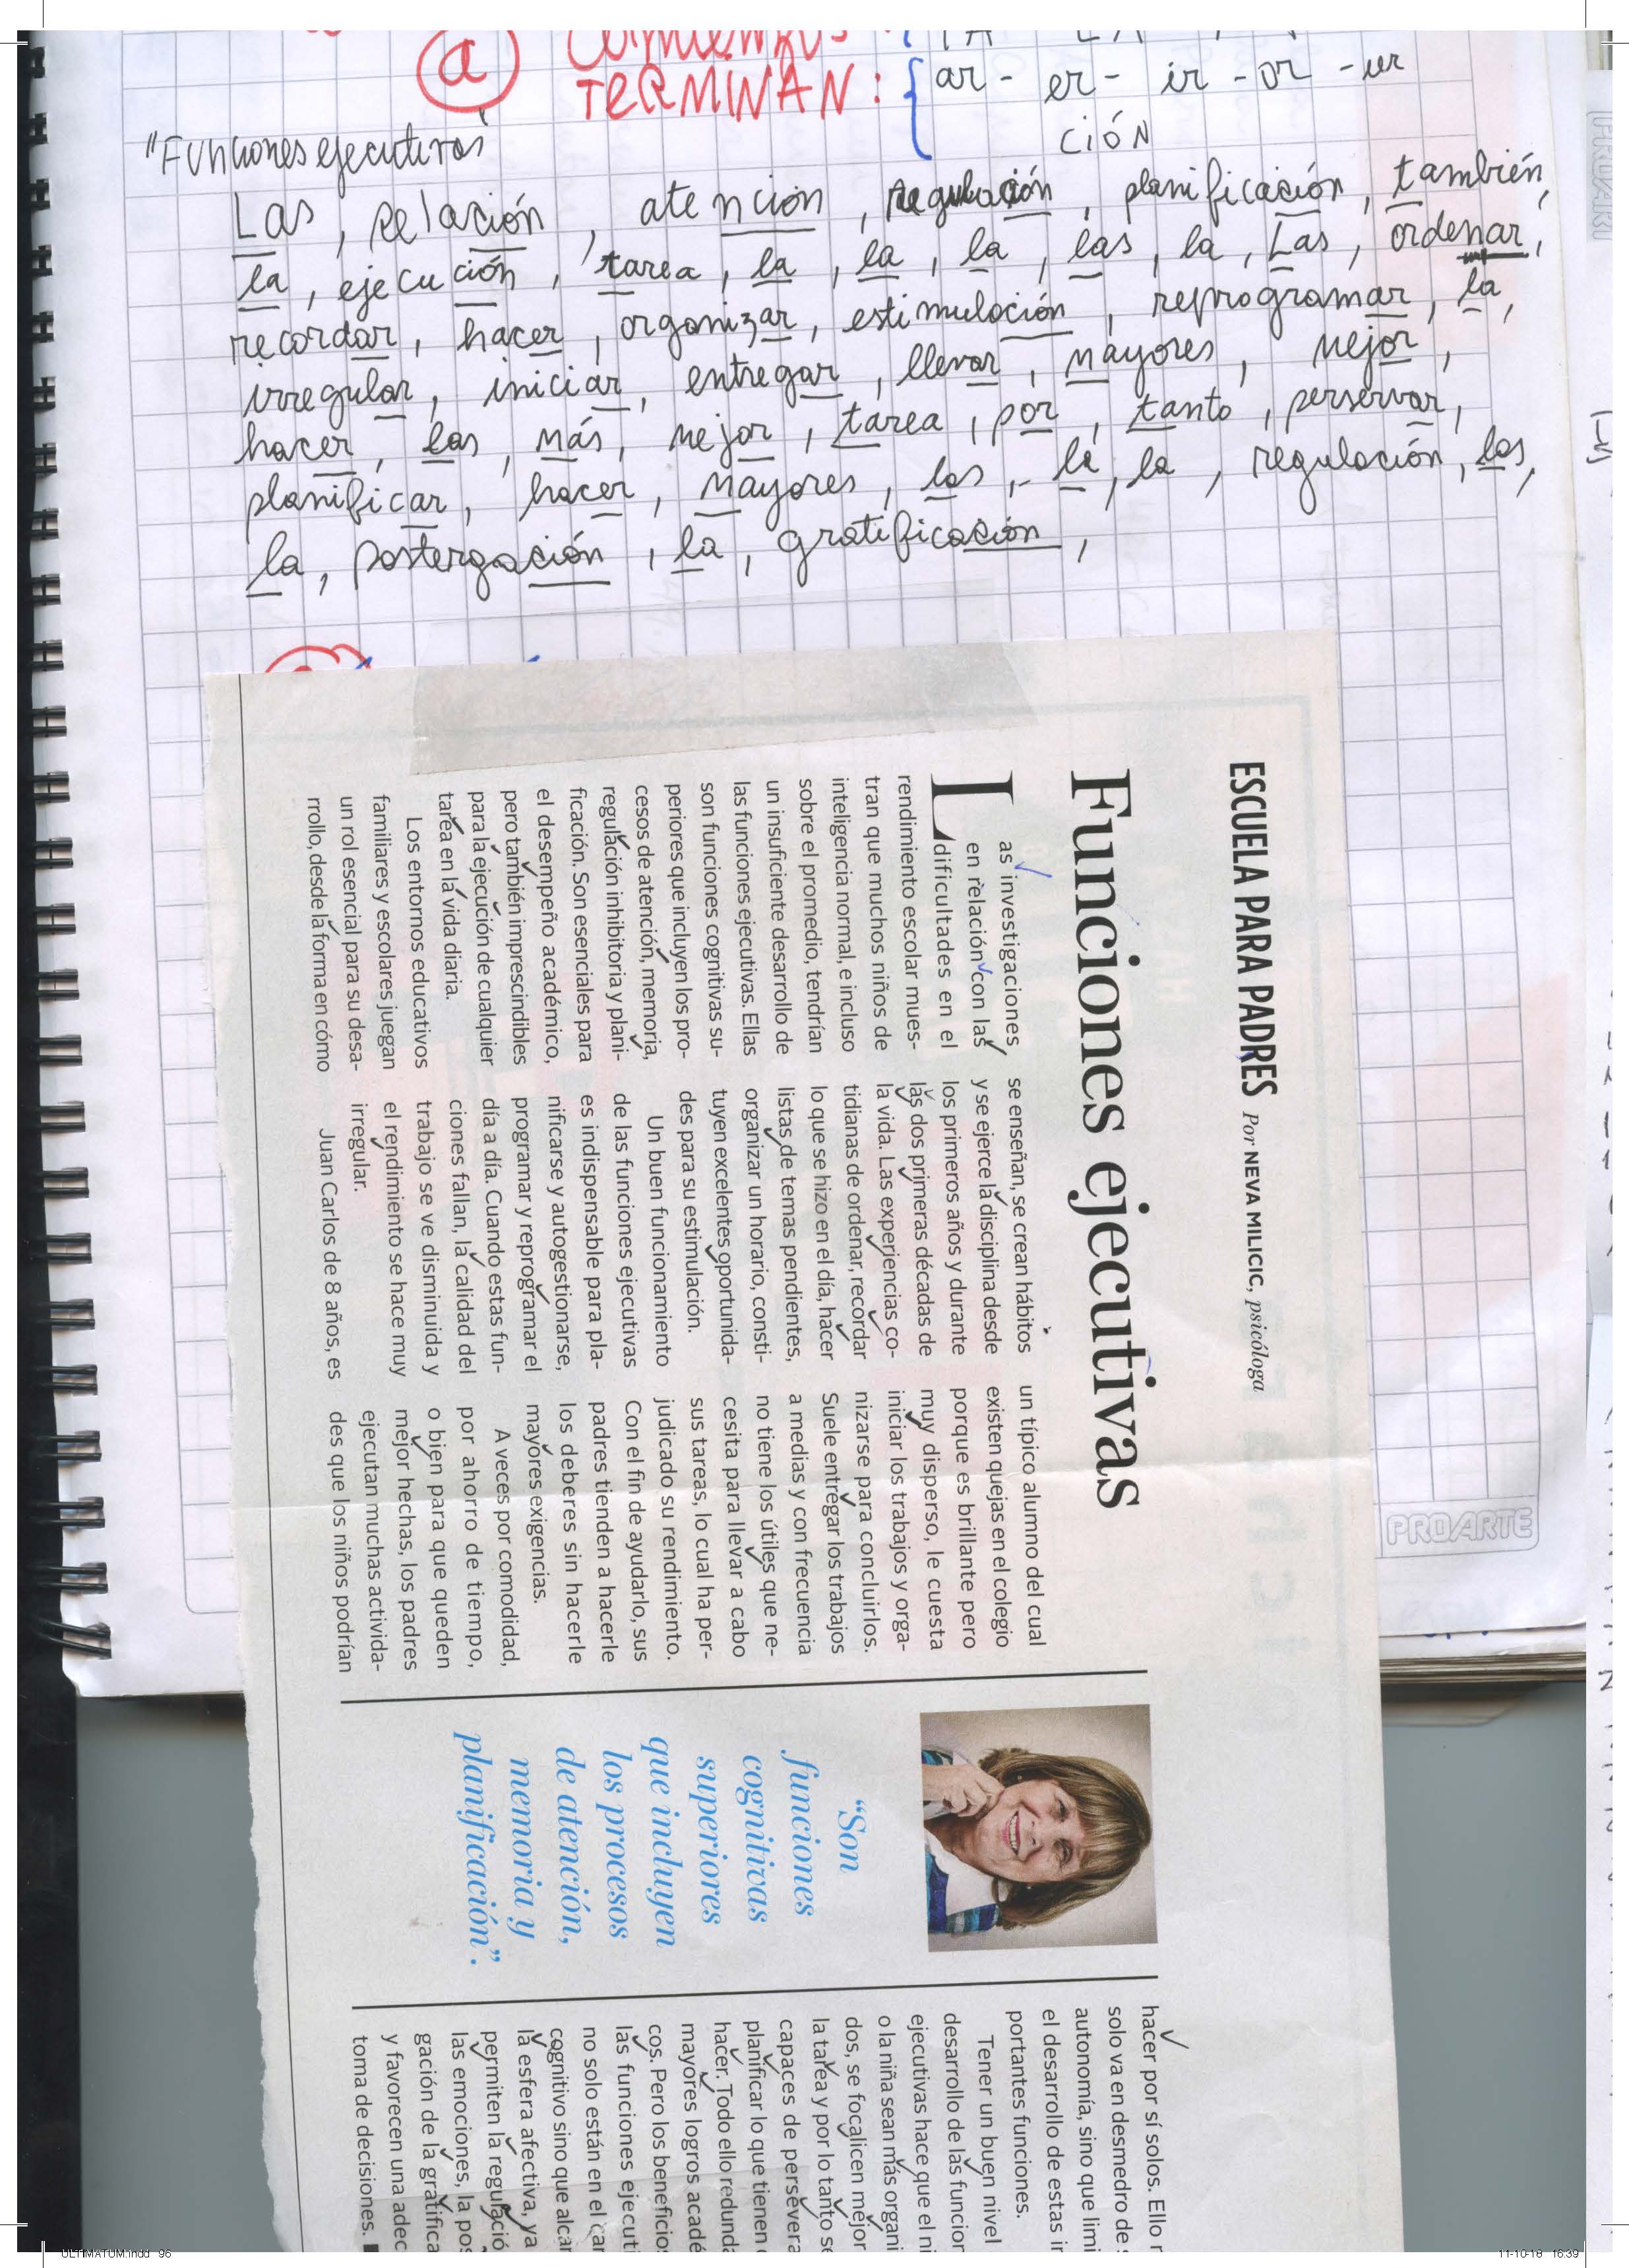 a
COMIENZAN:
TERMINAN: ar - er - ir - or - ur
CIÓN
"Funciones ejecutivas"
Las, relación, atención, regulación, planificación, también,
la, ejecución, tarea, la, la, la, las, la, Las, ordenar,
recordar, hacer, organizar, estimulación, reprogramar, la,
irregular, iniciar, entregar, llevar, mayores, mejor,
hacer, las, más, mejor, tarea, por, tanto, perservar,
planificar, hacer, mayores, las, la, la, regulación, las,
la, postergación, la, gratificación,
ESCUELA PARA PADRES Por NEVA MILICIC, psicóloga
Funciones ejecutivas
Las investigaciones
en relación con las
dificultades en el
rendimiento escolar mues-
tran que muchos niños de
inteligencia normal, e incluso
sobre el promedio, tendrían
un insuficiente desarrollo de
las funciones ejecutivas. Ellas
son funciones cognitivas su-
periores que incluyen los pro-
cesos de atención, memoria,
regulación inhibitoria y plani-
ficación. Son esenciales para
el desempeño académico,
pero también imprescindibles
para la ejecución de cualquier
tarea en la vida diaria.
Los entornos educativos
familiares y escolares juegan
un rol esencial para su desa-
rrollo, desde la forma en cómo
se enseñan, se crean hábitos
y se ejerce la disciplina desde
los primeros años y durante
las dos primeras décadas de
la vida. Las experiencias co-
tidianas de ordenar, recordar
lo que se hizo en el día, hacer
listas de temas pendientes,
organizar un horario, consti-
tuyen excelentes oportunida-
des para su estimulación.
Un buen funcionamiento
de las funciones ejecutivas
es indispensable para pla-
nificarse y autogestionarse,
programar y reprogramar el
día a día. Cuando estas fun-
ciones fallan, la calidad del
trabajo se ve disminuida y
el rendimiento se hace muy
irregular.
Juan Carlos de 8 años, es
un típico alumno del cual
existen quejas en el colegio
porque es brillante pero
muy disperso, le cuesta
iniciar los trabajos y orga-
nizarse para concluirlos.
Suele entregar los trabajos
a medias y con frecuencia
no tiene los útiles que ne-
cesita para llevar a cabo
sus tareas, lo cual ha per-
judicado su rendimiento.
Con el fin de ayudarlo, sus
padres tienden a hacerle
los deberes sin hacerle
mayores exigencias.
A veces por comodidad,
por ahorro de tiempo,
o bien para que queden
mejor hechas, los padres
ejecutan muchas activida-
des que los niños podrían
“Son
funciones
cognitivas
superiores
que incluyen
los procesos
de atención,
memoria y
planificación”.
hacer por sí solos. Ello
solo va en desmedro de
autonomía, sino que limi
el desarrollo de estas
portantes funciones.
Tener un buen nivel
desarrollo de las funcion
ejecutivas hace que el ni
o la niña sean más organi
dos, se focalicen mejor
la tarea y por lo tanto se
capaces de persevera
planificar lo que tienen
hacer. Todo ello redunda
mayores logros acadé
cos. Pero los beneficio
las funciones ejecuti
no solo están en el ca
cognitivo sino que alca
la esfera afectiva, ya
permiten la regulació
las emociones, la pos
gación de la gratifica
y favorecen una adec
toma de decisiones.
PROARTE
PROARTE
ULTIMATUM.indd 96
11-10-18 16:39